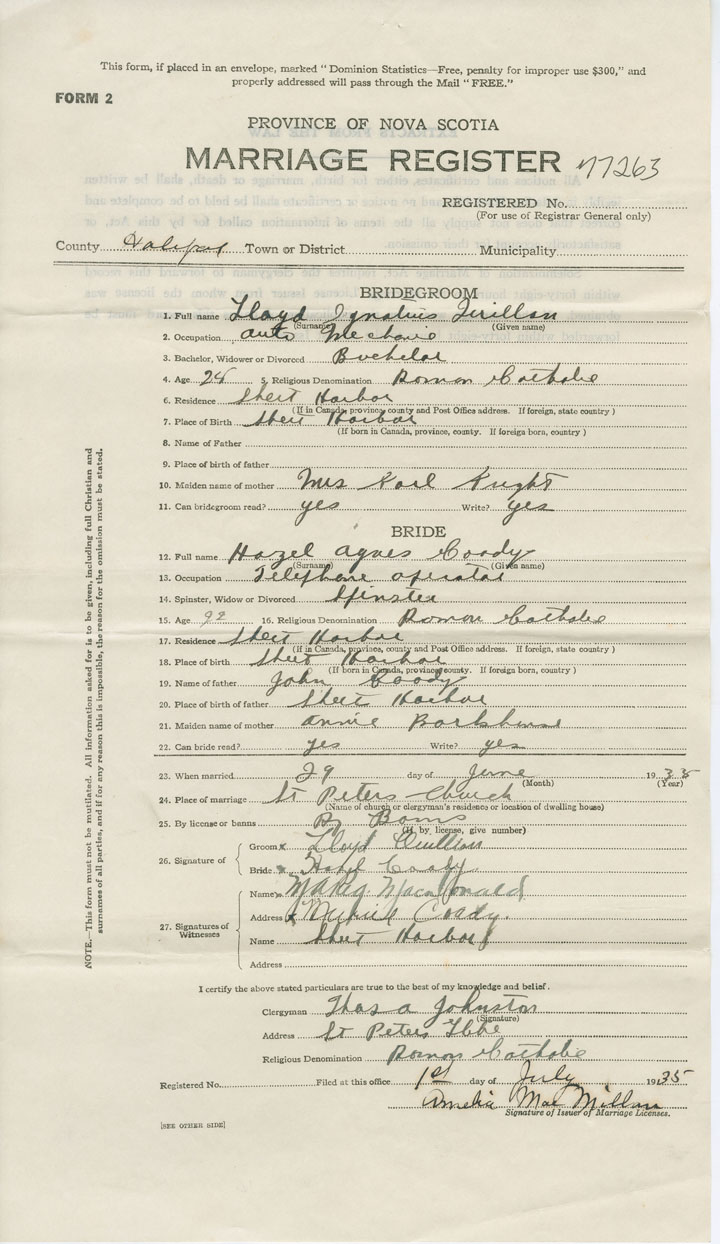 This form, if placed in an envelope, marked " Dominion Statistics—Free, penalty for improper use $300," and
properly addressed will pass through the Mail " FREE."
FORM 2
PROVINCE OF NOVA SCOTIA
MARRIAGE REGISTER 77263
REGISTERED No.
(For use of Registrar General only)
County Halifax Town or District Municipality
BRIDEGROOM
1. Full name Lloyd Ignatius
(Surname) (Given name)
2. Occupation Auto Mechanic
3. Bachelor, Widower or Divorced Bachelor
4. Age 24 5. Religious Denomination Roman Catholic
6. Residence Sheet Harbor
(If in Canada, province, county and Post Office address. If foreign, state country )
7. Place of Birth Sheet Harbor
(If born in Canada, province, county. If foreign born, country )
8. Name of Father
9. Place of birth of father
10. Maiden name of mother Mrs Karl
11. Can bridegroom read? yes Write? yes
BRIDE
12. Full name Hazel Agnes Coady
(Surname) (Given name)
13. Occupation Telephone operator
14. Spinster, Widow or Divorced Spinster
15. Age 22 16. Religious Denomination Roman Catholic
17. Residence Sheet Harbor
(If in Canada, province, county and Post Office address. If foreign, state country )
18. Place of birth Sheet Harbor
(If born in Canada, province, county. If foreign born, country )
19. Name of father John Coady
20. Place of birth of father Sheet Harbor
21. Maiden name of mother Annie
22. Can bride read? yes Write? yes
23. When married 29 day of June 1935
(Month) (Year)
24. Place of marriage St Peters Church
(Name of church or clergyman's residence or location of dwelling house)
25. By license or banns By Banns
(If by license, give number)
26. Signature of
Groom Lloyd
Bride Hazel Coady
27. Signatures of
Witnesses
Name MacDonald
Address Coady.
Name Sheet Harbor
Address
I certify the above stated particulars are true to the best of my knowledge and belief.
Clergyman Thos A Johnston
(Signature)
Address St Peters Glebe
Religious Denomination Roman Catholic
Registered No. Filed at this office 1st day of July 1935
Amelia MacMillan
Signature of Issuer of Marriage Licenses.
[SEE OTHER SIDE]
NOTE.—This form must not be mutilated. All information asked for is to be given, including full Christian and
surnames of all parties, and if for any reason this is impossible, the reason for the omission must be stated.